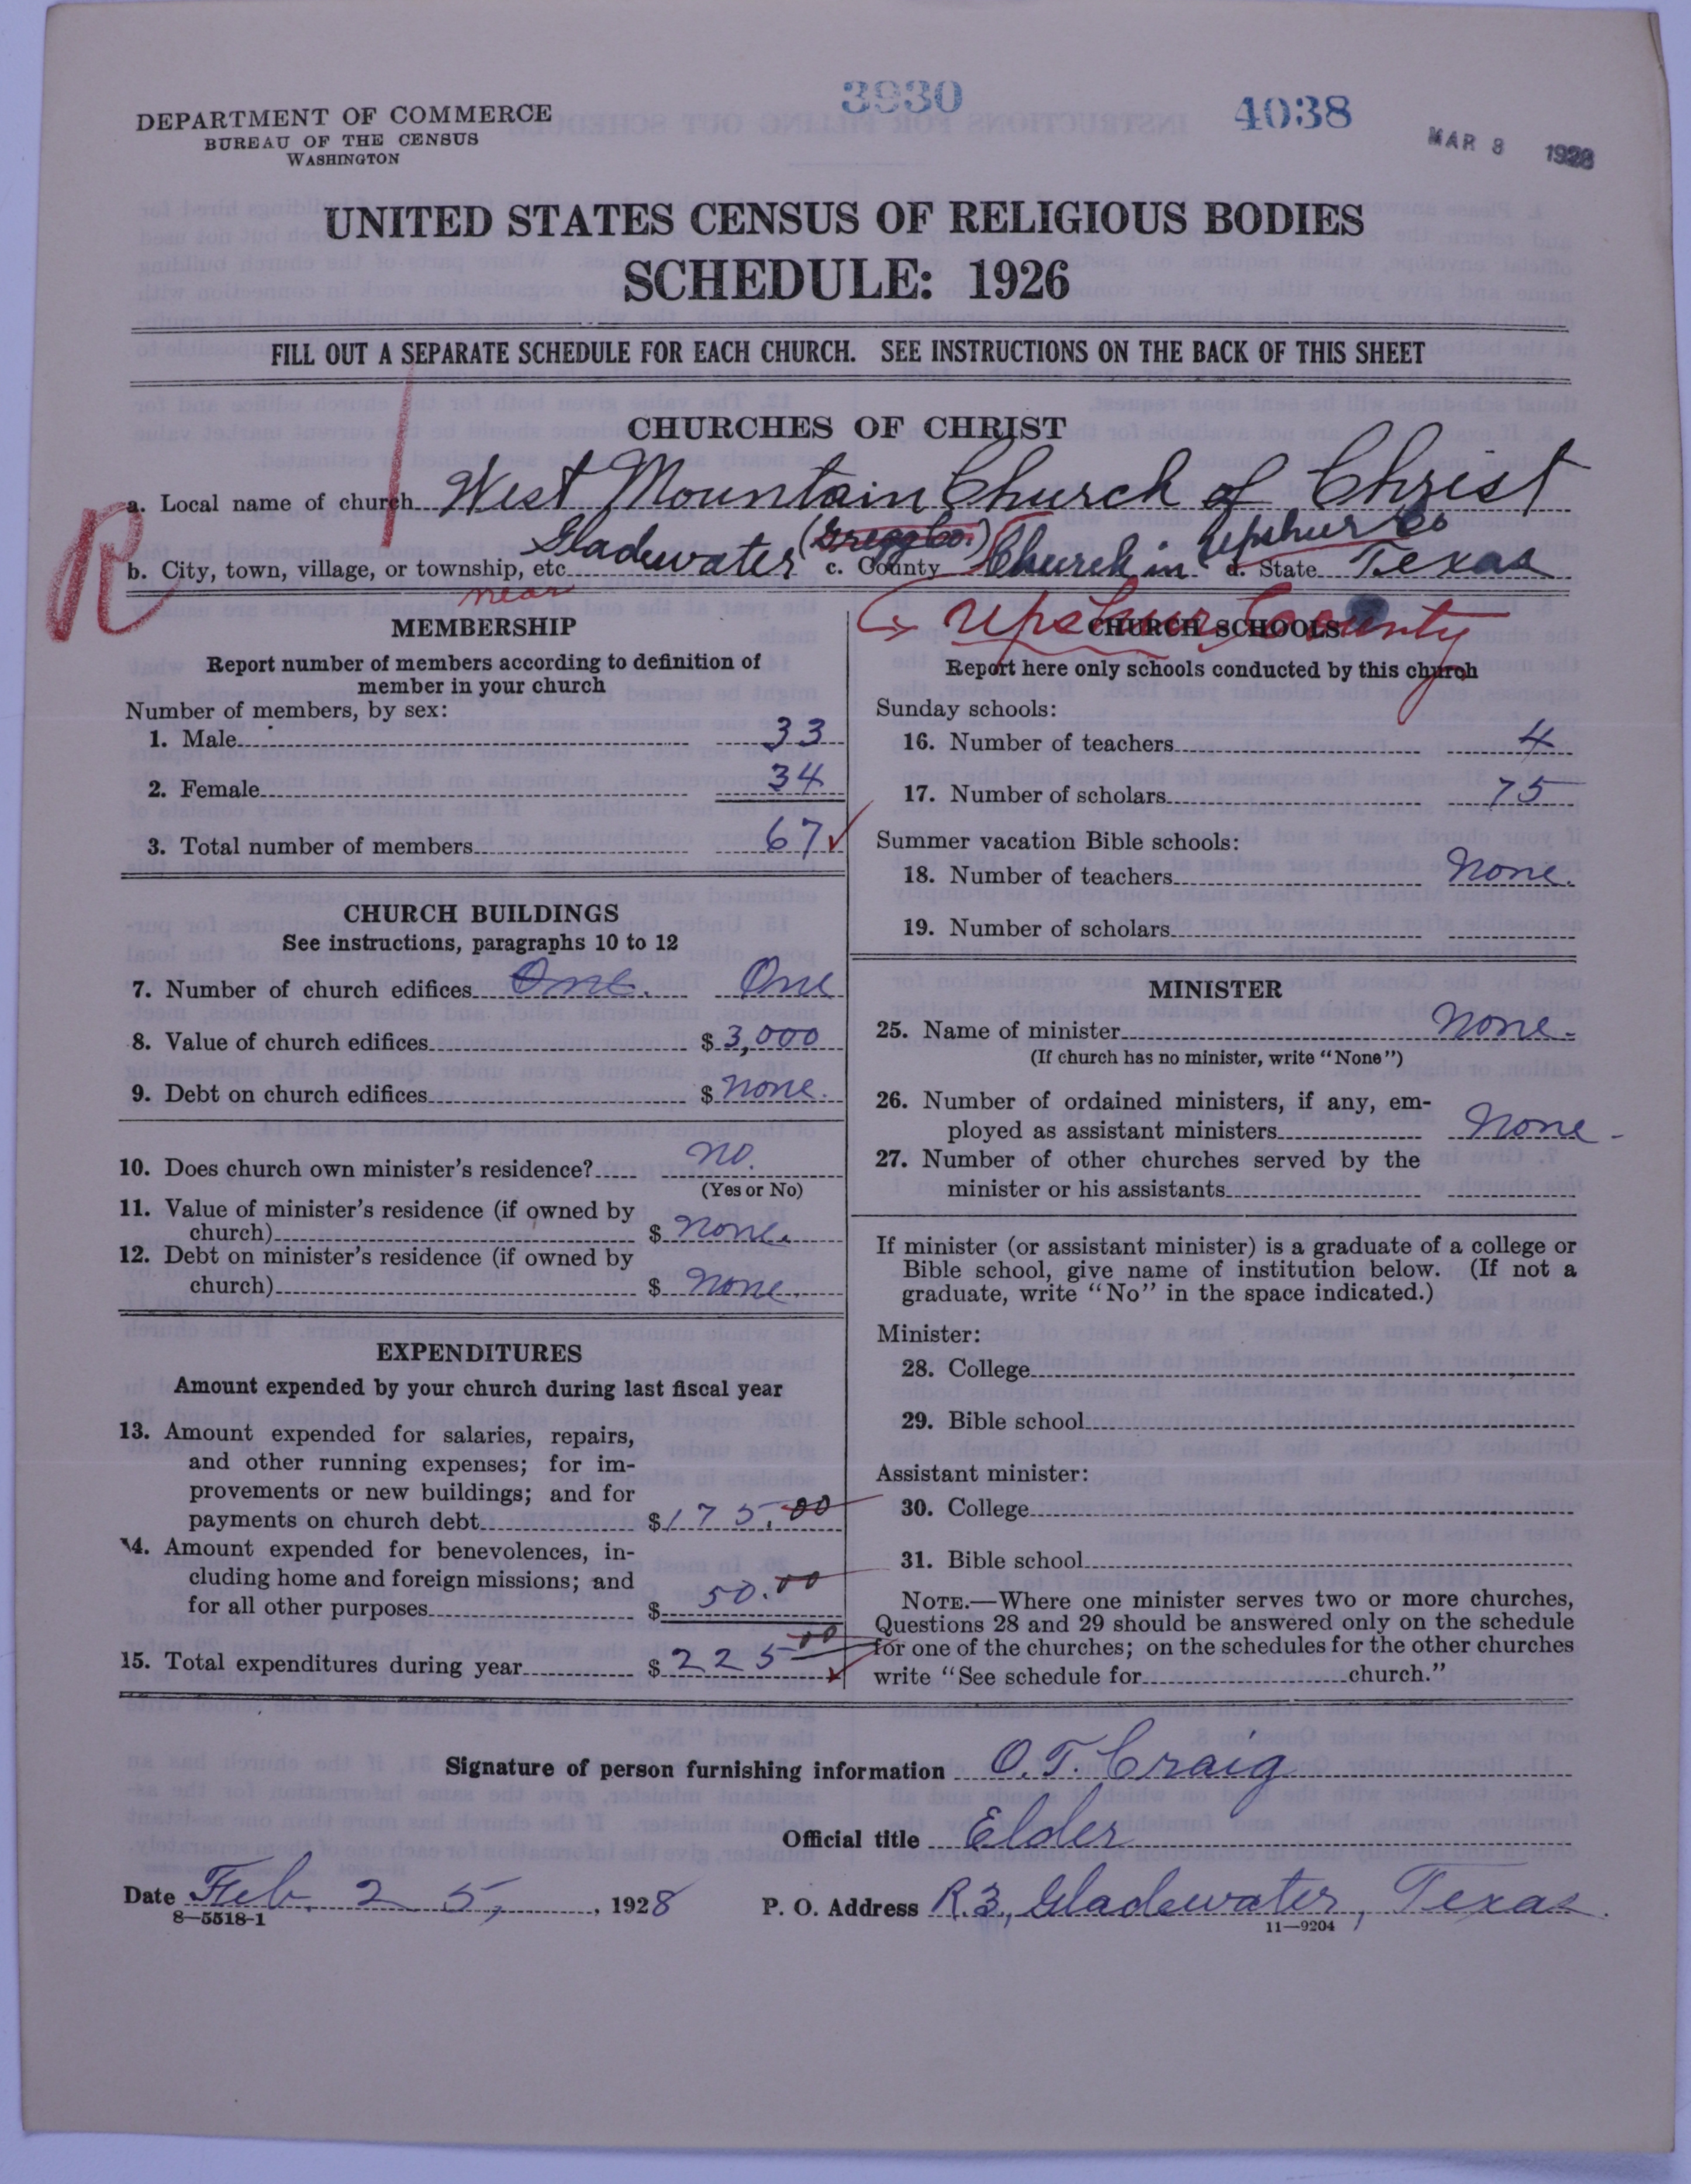 3930
4038
MAR 8 1928
DEPARTMENT OF COMMERCE
BUREAU OF THE CENSUS
WASHINGTON
UNITED STATES CENSUS OF RELIGIOUS BODIES
SCHEDULE: 1926
FILL OUT A SEPARATE SCHEDULE FOR EACH CHURCH. SEE INSTRUCTIONS ON THE BACK OF THIS SHEET
CHURCHES OF CHRIST
R
a. Local name of church West Mountain Church of Christ
b. City, town, village, or township, etc. Gladewater (Gregg Co.) c. County Church in Upshur Co d. State Texas
near
Upshur County
MEMBERSHIP
Report number of members according to definition of
member in your church
Number of members, by sex:
1. Male 33
2. Female 34
3. Total number of members 67
CHURCH BUILDINGS
See instructions, paragraphs 10 to 12
7. Number of church edifices One. One
8. Value of church edifices $ 3,000
9. Debt on church edifices $ none.
10. Does church own minister's residence? no.
(Yes or No)
11. Value of minister's residence (if owned by
church) $ none.
12. Debt on minister's residence (if owned by
church) $ none.
EXPENDITURES
Amount expended by your church during last fiscal year
13. Amount expended for salaries, repairs,
and other running expenses; for im-
provements or new buildings; and for
payments on church debt $ 175.00
14. Amount expended for benevolences, in-
cluding home and foreign missions; and
for all other purposes $ 50.00
15. Total expenditures during year $ 225 00
CHURCH SCHOOLS
Report here only schools conducted by this church
Sunday schools:
16. Number of teachers 4
17. Number of scholars 75
Summer vacation Bible schools:
18. Number of teachers None.
19. Number of scholars
MINISTER
25. Name of minister None-
(If church has no minister, write "None")
26. Number of ordained ministers, if any, em-
ployed as assistant ministers None-
27. Number of other churches served by the
minister or his assistants
If minister (or assistant minister) is a graduate of a college or
Bible school, give name of institution below. (If not a
graduate, write "No" in the space indicated.)
Minister:
28. College
29. Bible school
Assistant minister:
30. College
31. Bible school
NOTE.—Where one minister serves two or more churches,
Questions 28 and 29 should be answered only on the schedule
for one of the churches; on the schedules for the other churches
write "See schedule for church."
Signature of person furnishing information O.T. Craig
Official title Elder
Date Feb. 25, , 1928 P. O. Address R.3, Gladewater, Texas.
8—5518-1
11—9204